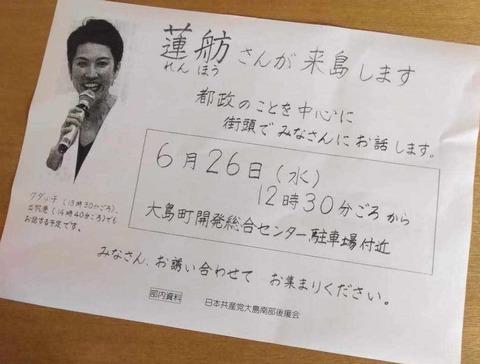 蓮舫さんが来島します
れんほう
都政のことを中心に
街頭でみなさんにお話します。
6月26日(水)
12時30分ごろから
大島町開発総合センター駐車場付近
クダッチ(13時30分ごろ)、
(14時40分ころ)でも
お話する予定です。
みなさん、お誘い合わせて お集まりください。
部内資料 日本共産党大島南部後援会